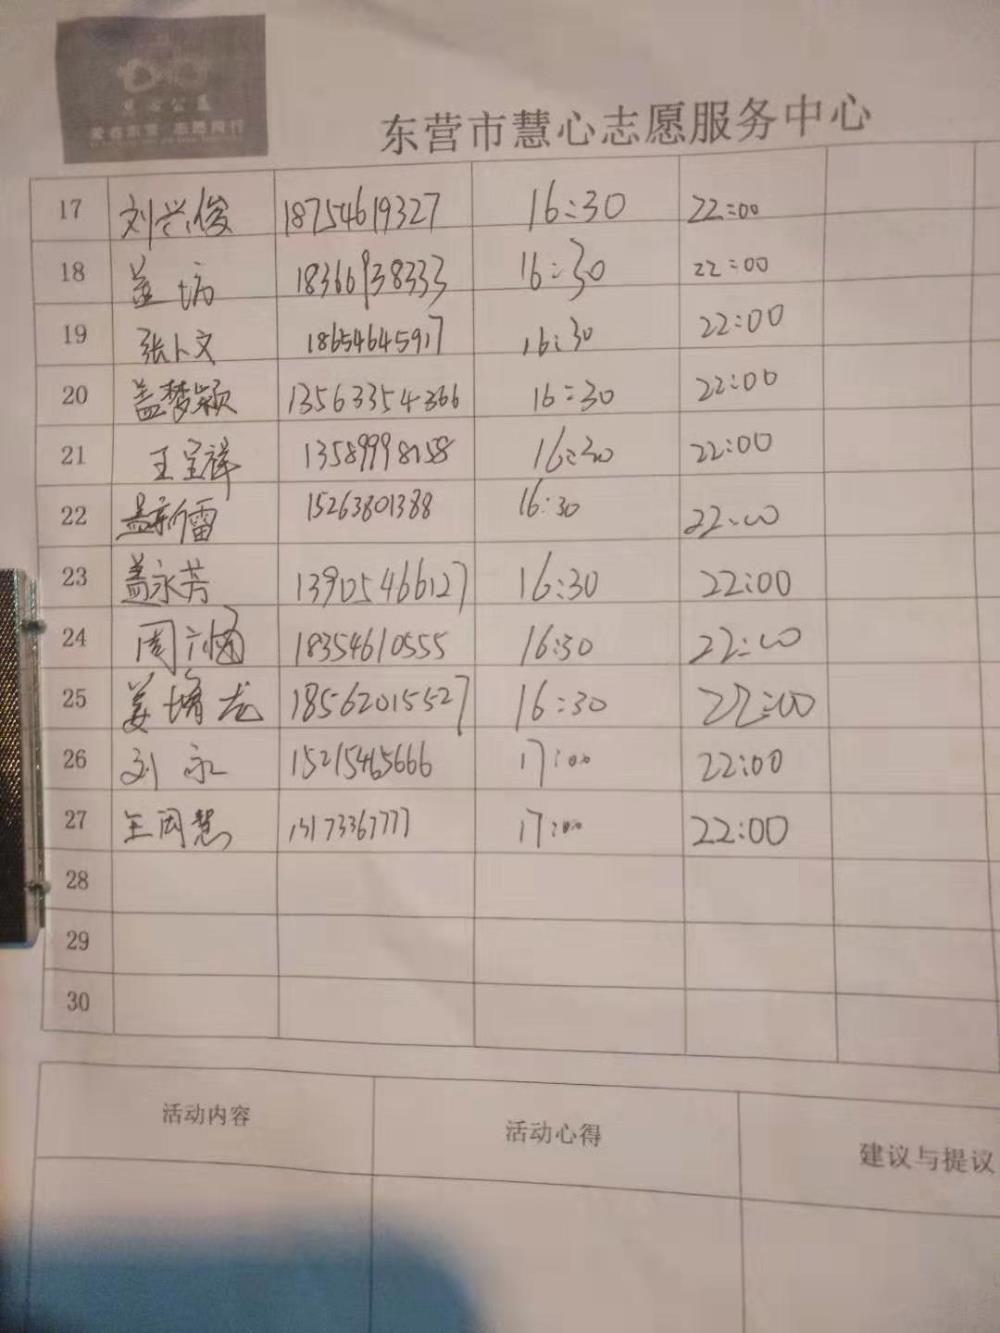 慧心公益
爱在东营 志愿同行
东营市慧心志愿服务中心
17 刘兴俊 18754619327 16:30 22:00
18 盖 18366938333 16:30 22:00
19 张卜文 18654645917 16:30 22:00
20 盖梦颖 13563354366 16:30 22:00
21 王宝祥 13589998158 16:30 22:00
22 盖新雷 15263801388 16:30 22:00
23 盖永芳 13905466127 16:30 22:00
24 周 18354610555 16:30 22:00
25 姜增龙 18562015527 16:30 22:00
26 刘永 15215465666 17:00 22:00
27 王国慧 15173367777 17:00 22:00
28
29
30
活动内容 活动心得 建议与提议